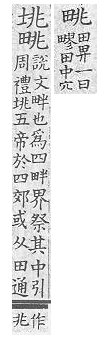 田畀一曰
疁田中穴
垗
說文畔也為四畔界祭其中引
周禮垗五帝於四郊或从田通
作
兆